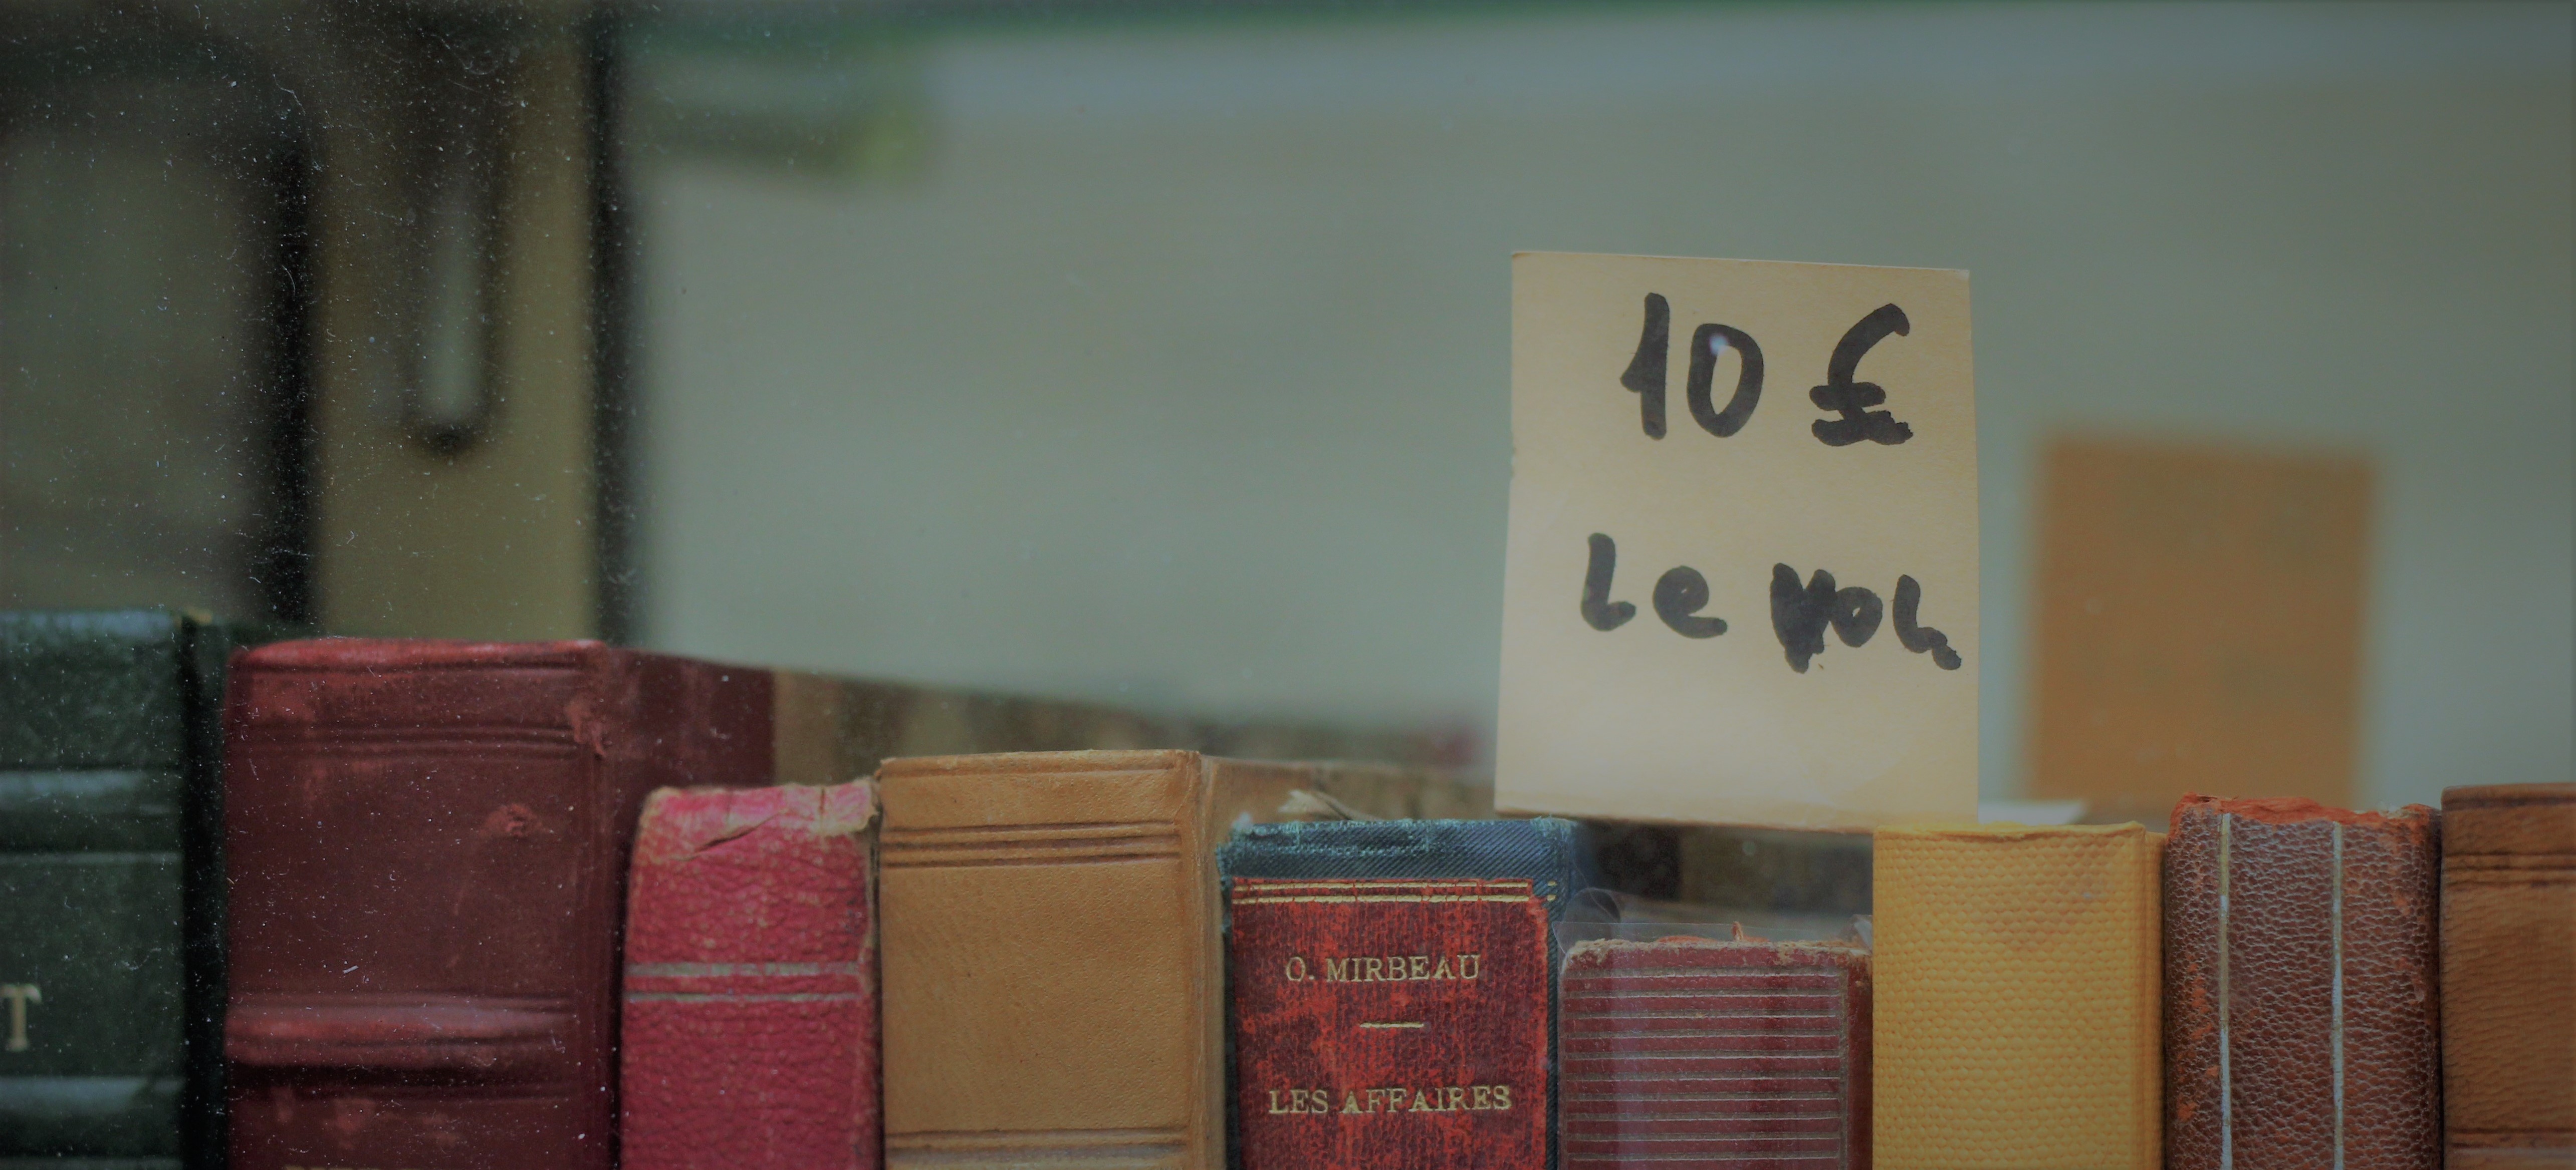 10 €
Le vol.
T
O. MIRBEAU
LES AFFAIRES